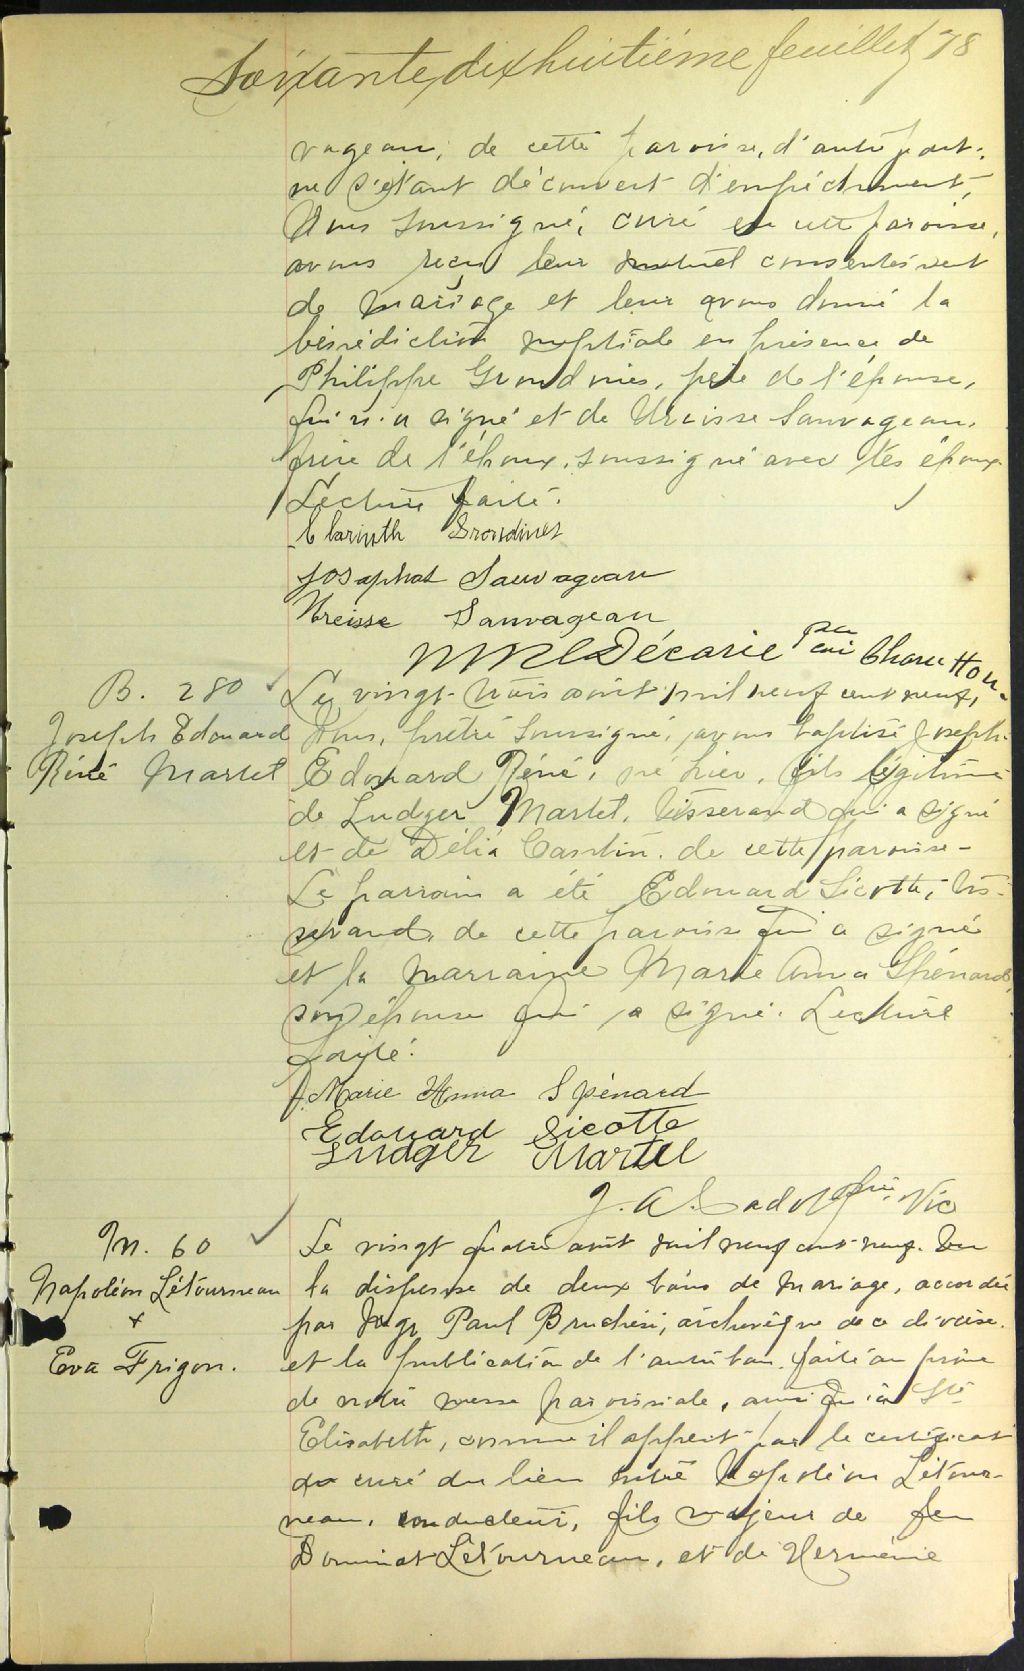 Soixante dix huitième feuillet 78
vageau, de cette paroisse, d'autre part;
ne s'étant découvert d'empêchement,
Nous soussigné, curé en cette paroisse,
avons reçu leur mutuel consentement
de mariage et leur avons donné la
bénédiction nuptiale en présence de
Philippe Grondines, père de l'épouse,
qui n'a signé et de Ureisse Sauvageau,
frère de l'époux, soussigné avec les époux.
Lecture faite.
Clarinth Grondines
Josaphat Sauvageau
Ureisse Sauvageau
Décarie curé
B. 280
Joseph Edouard
Réné Martel
Le vingt-trois août mil neuf cent neuf,
Nous, prêtre soussigné, avons baptisé Joseph
Edouard Réné, né hier, fils légitime
de Ludger Martel, tisserand qui a signé
et de Délia Cantin, de cette paroisse -
Le parrain a été Edouard Sicotte, tis-
serand, de cette paroisse qui a signé
et la marraine Marie Anna Spénard,
son épouse qui a signé. Lecture
faite.
Marie Anna Spénard
Edouard Sicotte
Ludger Martel
J. A. Vic
M. 60
Napoléon Létourneau
+
Eva Frigon.
Le vingt quatre août mil neuf cent neuf. Vu
la dispense de deux bans de mariage, accordée
par Mgr Paul Bruchési, archevêque de ce diocèse.
et la publication de l'autre ban, faite au prône
de notre messe paroissiale, ainsi qu'à Ste
Elisabeth, comme il appert par le certificat
du curé du lieu entre Napoléon Létour-
neau, conducteur, fils majeur de feu
Dominat Létourneau, et de Herménie